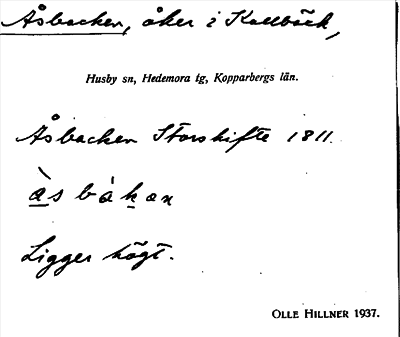 Åsbacken, åker i Kallbäck,
Husby sn, Hedemora tg, Kopparbergs län.
Åsbacken Storskifte 1811.
às bàkan
Ligger högt.
OLLE HILLNER 1937.